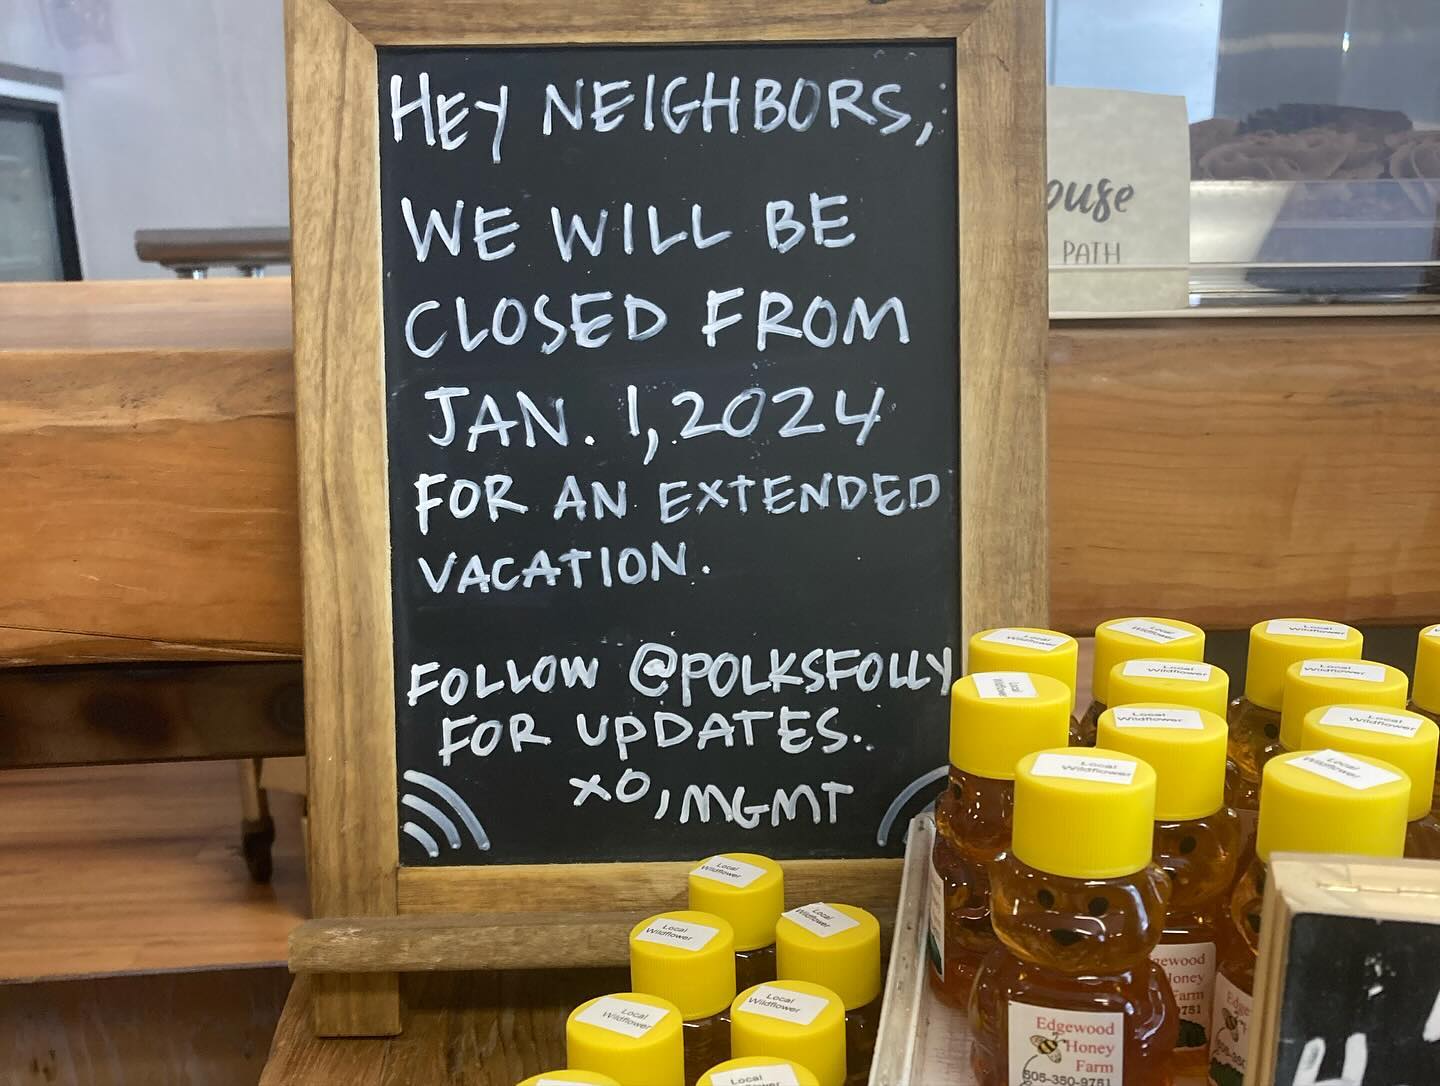 HEY NEIGHBORS,
WE WILL BE
CLOSED FROM
JAN. 1, 2024
FOR AN EXTENDED
VACATION.
FOLLOW @POLKSFOLLY
FOR UPDATES.
XO, MGMT
ouse
PATH
Local
Wildflower
Local
Wildflower
Local
Wildflower
Local
Wildflower
Local
Wildflower
Local
Wildflower
Local
Wildflower
Local
Wildflower
Local
Wildflower
Local
Wildflower
Local
Wildflower
Local
Wildflower
Local
Wildflower
Local
Wildflower
Local
Wildflower
Local
Edgewood
Honey
Farm
505-350-9751
gewood
Honey
Farm
9751
Edge